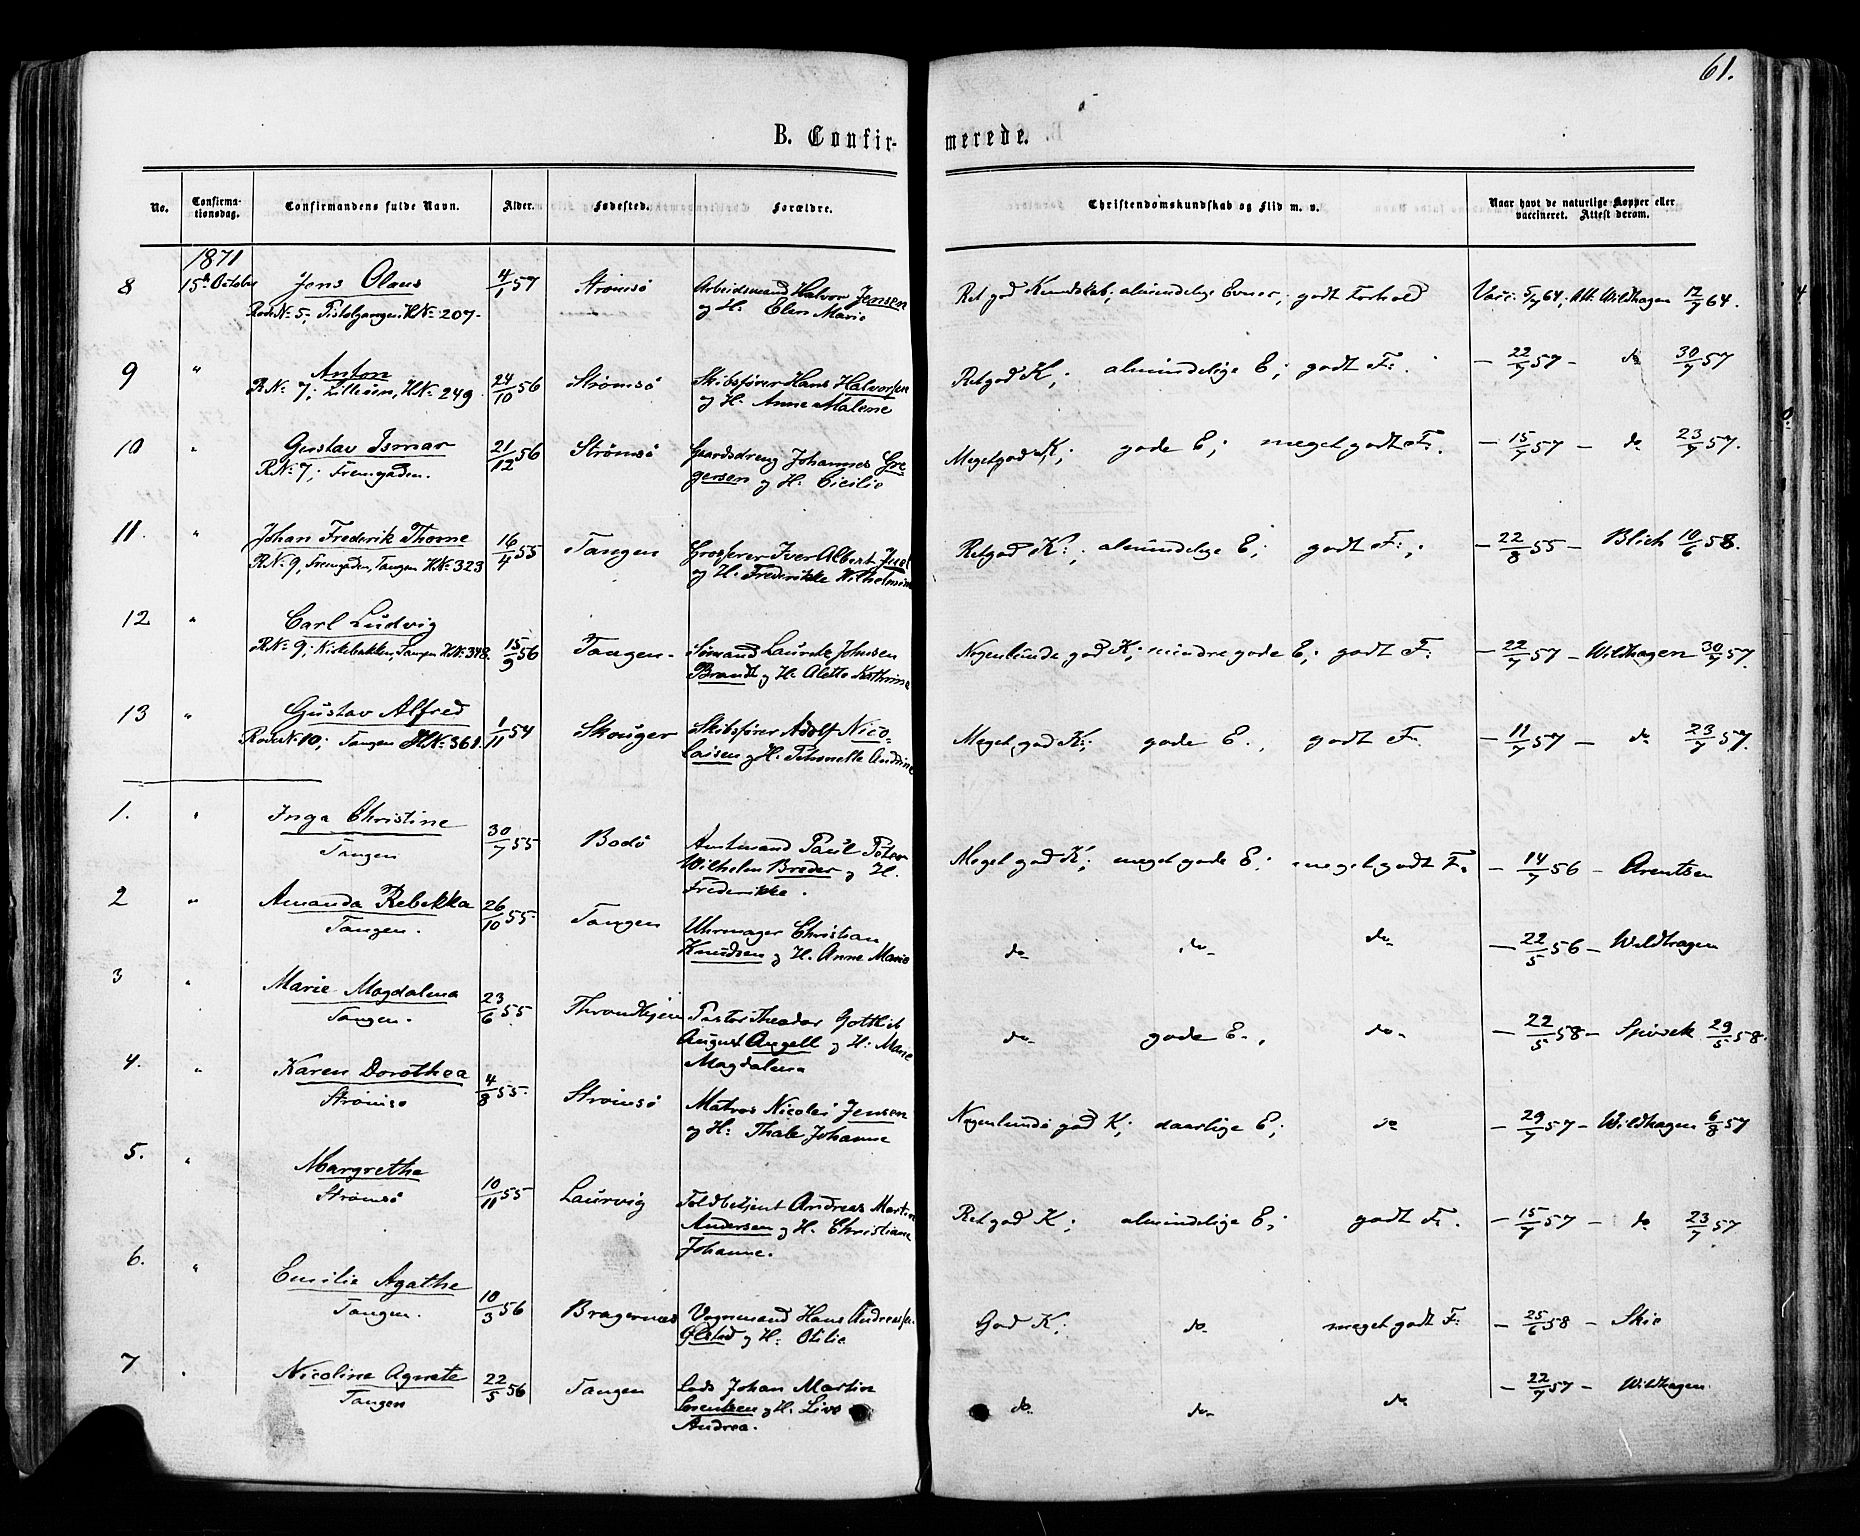 61.
B. Confirmerede.
No. Confirmationsdag. Confirmandens fulde Navn. Alder. Fødested. Forældre. Christendomskundskab og Flid m. v. Naar havt de naturlige Kopper eller vaccineret. Attest derom.
1871
8 15de October Jens Olaus 4/1 57 Strømsø Arbeidsmand Halvor Jensen Ret god Kundskab; almindelige Evner; godt Forhold Vacc: 5/7 64; Att: Wildhagen 12/7 64.
Rode No 5; Pistolgangen HNo 207. og H: Elen Marie
9 " Anton 24/10 56 Strømsø Skibsfører Hans Halvorsen Ret god K; almindelige E; godt F: — 22/7 57 — do 30/7 57
RNo 7; Lilleøen, HNo 249 og H: Anne Malene
10 " Gustav Ismar 21/12 56 Strømsø Gaardsdreng Johannes Gre- Meget god K; gode E; meget godt F. — 15/7 57 — do 23/7 57.
RNo 7; Fremgaden. gersen og H: Cicilie
11. " Johan Frederik Thorne 16/4 55 Tangen Grosserer Iver Albert Juel Ret god K:; almindelige E; godt F:; — 22/8 55 — Blich 10/6 58.
RNo 9, Fremgaden, Tangen HNo 323 og H: Frederikke Wilhelmine
12 " Carl Ludvig 15/9 56 Tangen Sømand Laurits Johnsen Nogenlunde god K; mindre gode E; godt F: — 22/7 57 — Wildhagen 30/7 57.
RNo 9; Kirkebakken, Tangen HNo 348. Brandt og H: Alette Kathrine
13 " Gustav Alfred 1/11 54 Skouger Skibsfører Adolf Nico- Meget god K:; gode E., godt F: — 11/7 57 — do 23/7 57.
Rode No 10; Tangen HNo 361. laisen og H: Petronelle Andrine
1. " Inga Christine 30/7 55 Bodø Amtmand Paul Peter Meget god K; meget gode E; meget godt F: — 14/7 56 — Arentsen
Tangen Wilhelm Breder og H.
Frederikke.
2 " Amanda Rebekka 26/10 55 Tangen Uhrmager Christian do do do — 22/5 56 — Wildhagen
Tangen. Knudsen og H. Anne Marie
3 " Marie Magdalena 23/6 55 Throndhjem Pastor Theodor Gottlieb do gode E., do — 22/5 58 — 29/5 58.
Tangen. August Angell og H: Marie
Magdalena
4. " Karen Dorothea 4/8 55 Strømsø Matros Nicolai Jensen Nogenlunde god K; daarlige E; do — 29/7 57 — Wildhagen 6/8 57
Strømsø og H: Thale Johanne
5. " Margrethe 10/11 55 Laurvig Toldbetjent Andreas Martin Ret god K; almindelige E; godt F. — 15/7 57 — do 23/7 57
Strømsø Andersen og H. Christiane
Johanne.
6. " Emilie Agathe 10/3 56 Bragernæs Vognmand Hans Andreasen God K; do meget godt F: — 25/6 58 — Skie
Tangen. Ølstad og H: Otilie
7 " Nicoline Agnete 22/5 56 Tangen Lods Johan Martin do do do — 22/7 57 — Wildhagen.
Tangen Sørensen og H: Live
Andrea.